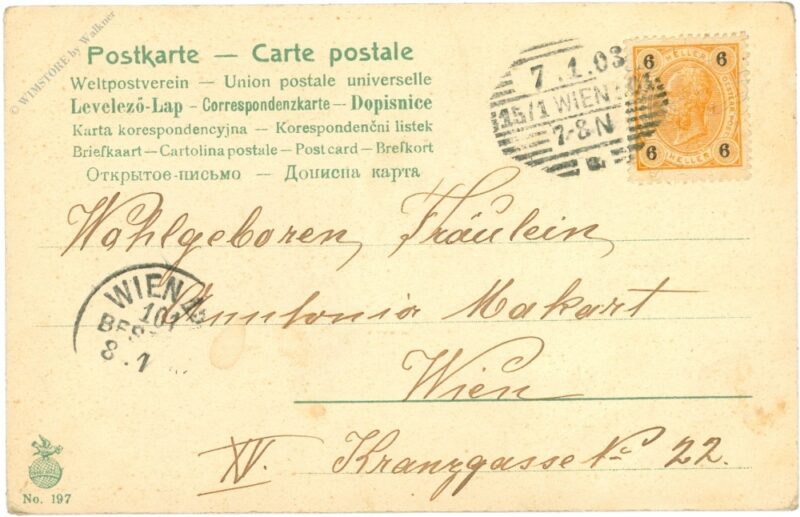 © WIMSTORE by Walkner
Postkarte — Carte postale
Weltpostverein — Union postale universelle
Levelező-Lap - Correspondenzkarte — Dopisnice
Karta korespondencyjna — Korespondenční listek
Briefkaart — Cartolina postale — Post card — Brefkort
Открытое-письмо — Дописна карта
7.1.03
15/1 WIEN 101
7-8N
6 HELLER 6
6 HELLER 6
Wohlgeboren Fräulein
Anntonia Makart
Wien
XV. Kranzgasse No 22.
WIEN
101
BES
8.1
No. 197